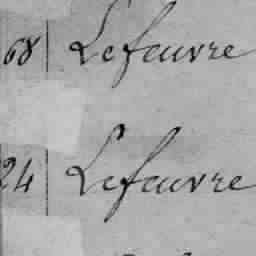 68 Lefeuvre
24 Lefeuvre